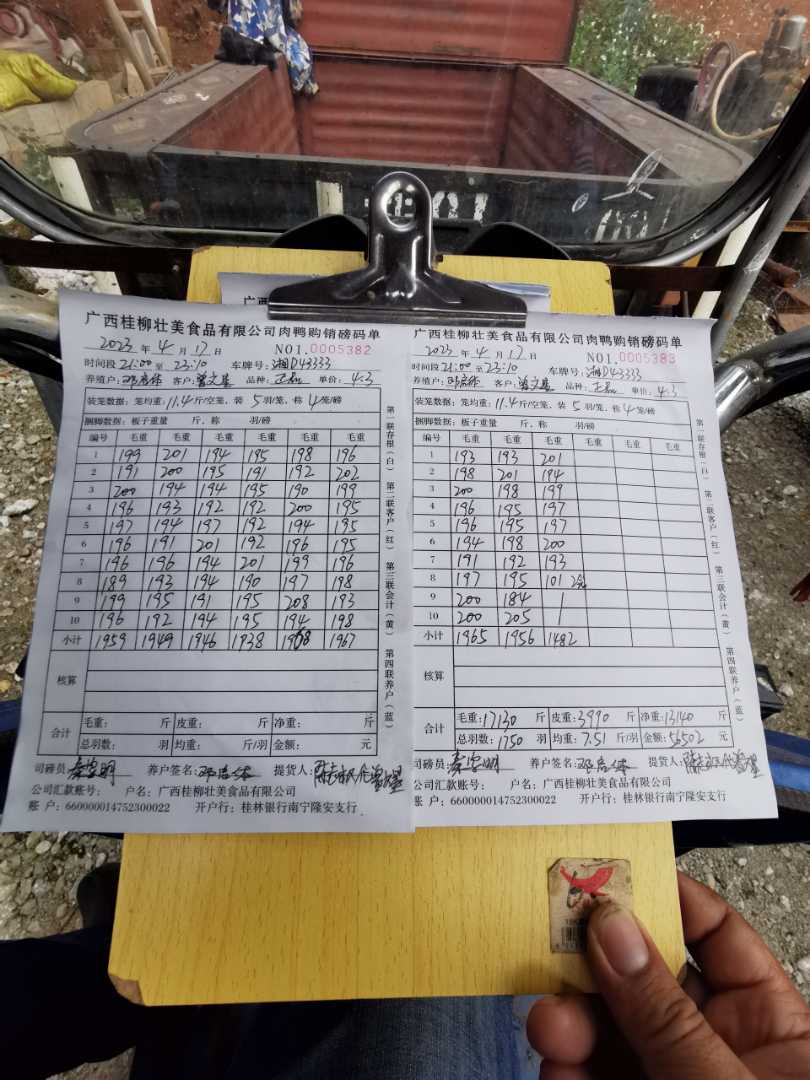 广西桂柳壮美食品有限公司肉鸭购销磅码单
2023 年 4 月 17 日 NO1.0005382
时间段 21:00 至 23:10 车牌号:湘D43333
养殖户: 客户:曾文星 品种: 单价: 4.3
装笼数据:笼均重:11.4斤/空笼,装 5 羽/笼,称 4 笼/磅
捆脚数据:板子重量 斤,称 羽/磅
编号 毛重 毛重 毛重 毛重 毛重 毛重
1 199 201 194 195 198 196
2 191 200 195 191 192 202
3 200 194 194 195 190 199
4 196 193 192 192 200 195
5 197 194 197 192 194 195
6 196 191 201 192 196 195
7 196 196 194 201 199 196
8 189 193 194 190 197 198
9 199 195 191 195 208 193
10 196 192 194 195 194 198
小计 1959 1949 1946 1938 1968 1967
核算
合计 毛重: 斤 皮重: 斤 净重: 斤
总羽数: 羽 均重: 斤/羽 金额: 元
司磅员: 养户签名: 提货人:
公司汇款账号: 户名:广西桂柳壮美食品有限公司
账 户:660000014752300022 开户行:桂林银行南宁隆安支行
第一联存根(白) 第二联客户(红) 第三联会计(黄) 第四联养户(蓝)
广西桂柳壮美食品有限公司肉鸭购销磅码单
2023 年 4 月 17 日 NO1.0005383
时间段 21:00 至 23:10 车牌号:湘D43333
养殖户: 客户:曾文星 品种: 单价: 4.3
装笼数据:笼均重:11.4斤/空笼,装 5 羽/笼,称 4 笼/磅
捆脚数据:板子重量 斤,称 羽/磅
编号 毛重 毛重 毛重 毛重 毛重 毛重
1 193 193 201
2 198 201 194
3 200 198 199
4 196 195 197
5 196 195 197
6 194 198 200
7 191 192 193
8 197 195 101
9 200 184
10 200 205
小计 1965 1956 1482
核算
合计 毛重:17130 斤 皮重:3990 斤 净重:13140 斤
总羽数:1750 羽 均重:7.51 斤/羽 金额:56502 元
司磅员: 养户签名: 提货人:
公司汇款账号: 户名:广西桂柳壮美食品有限公司
账 户:660000014752300022 开户行:桂林银行南宁隆安支行
第一联存根(白) 第二联客户(红) 第三联会计(黄) 第四联养户(蓝)